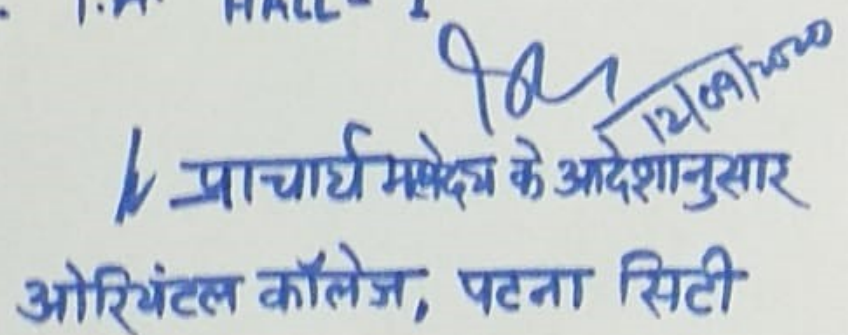 HALL- I
12/09/2020
प्राचार्य महोदय के आदेशानुसार
ओरियंटल कॉलेज, पटना सिटी